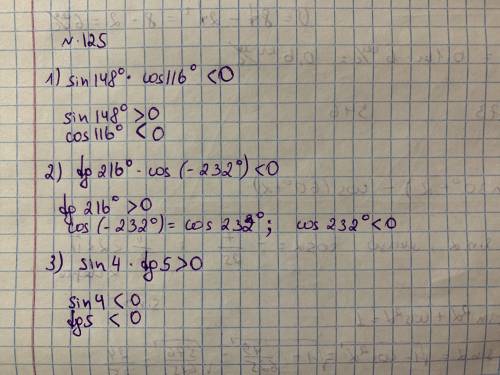 № 125
1) sin 148° · cos 116° < 0
sin 148° > 0
cos 116° < 0
2) tg 216° · cos (-232°) < 0
tg 216° > 0
cos (-232°) = cos 232°; cos 232° < 0
3) sin 4 · tg 5 > 0
sin 4 < 0
tg 5 < 0